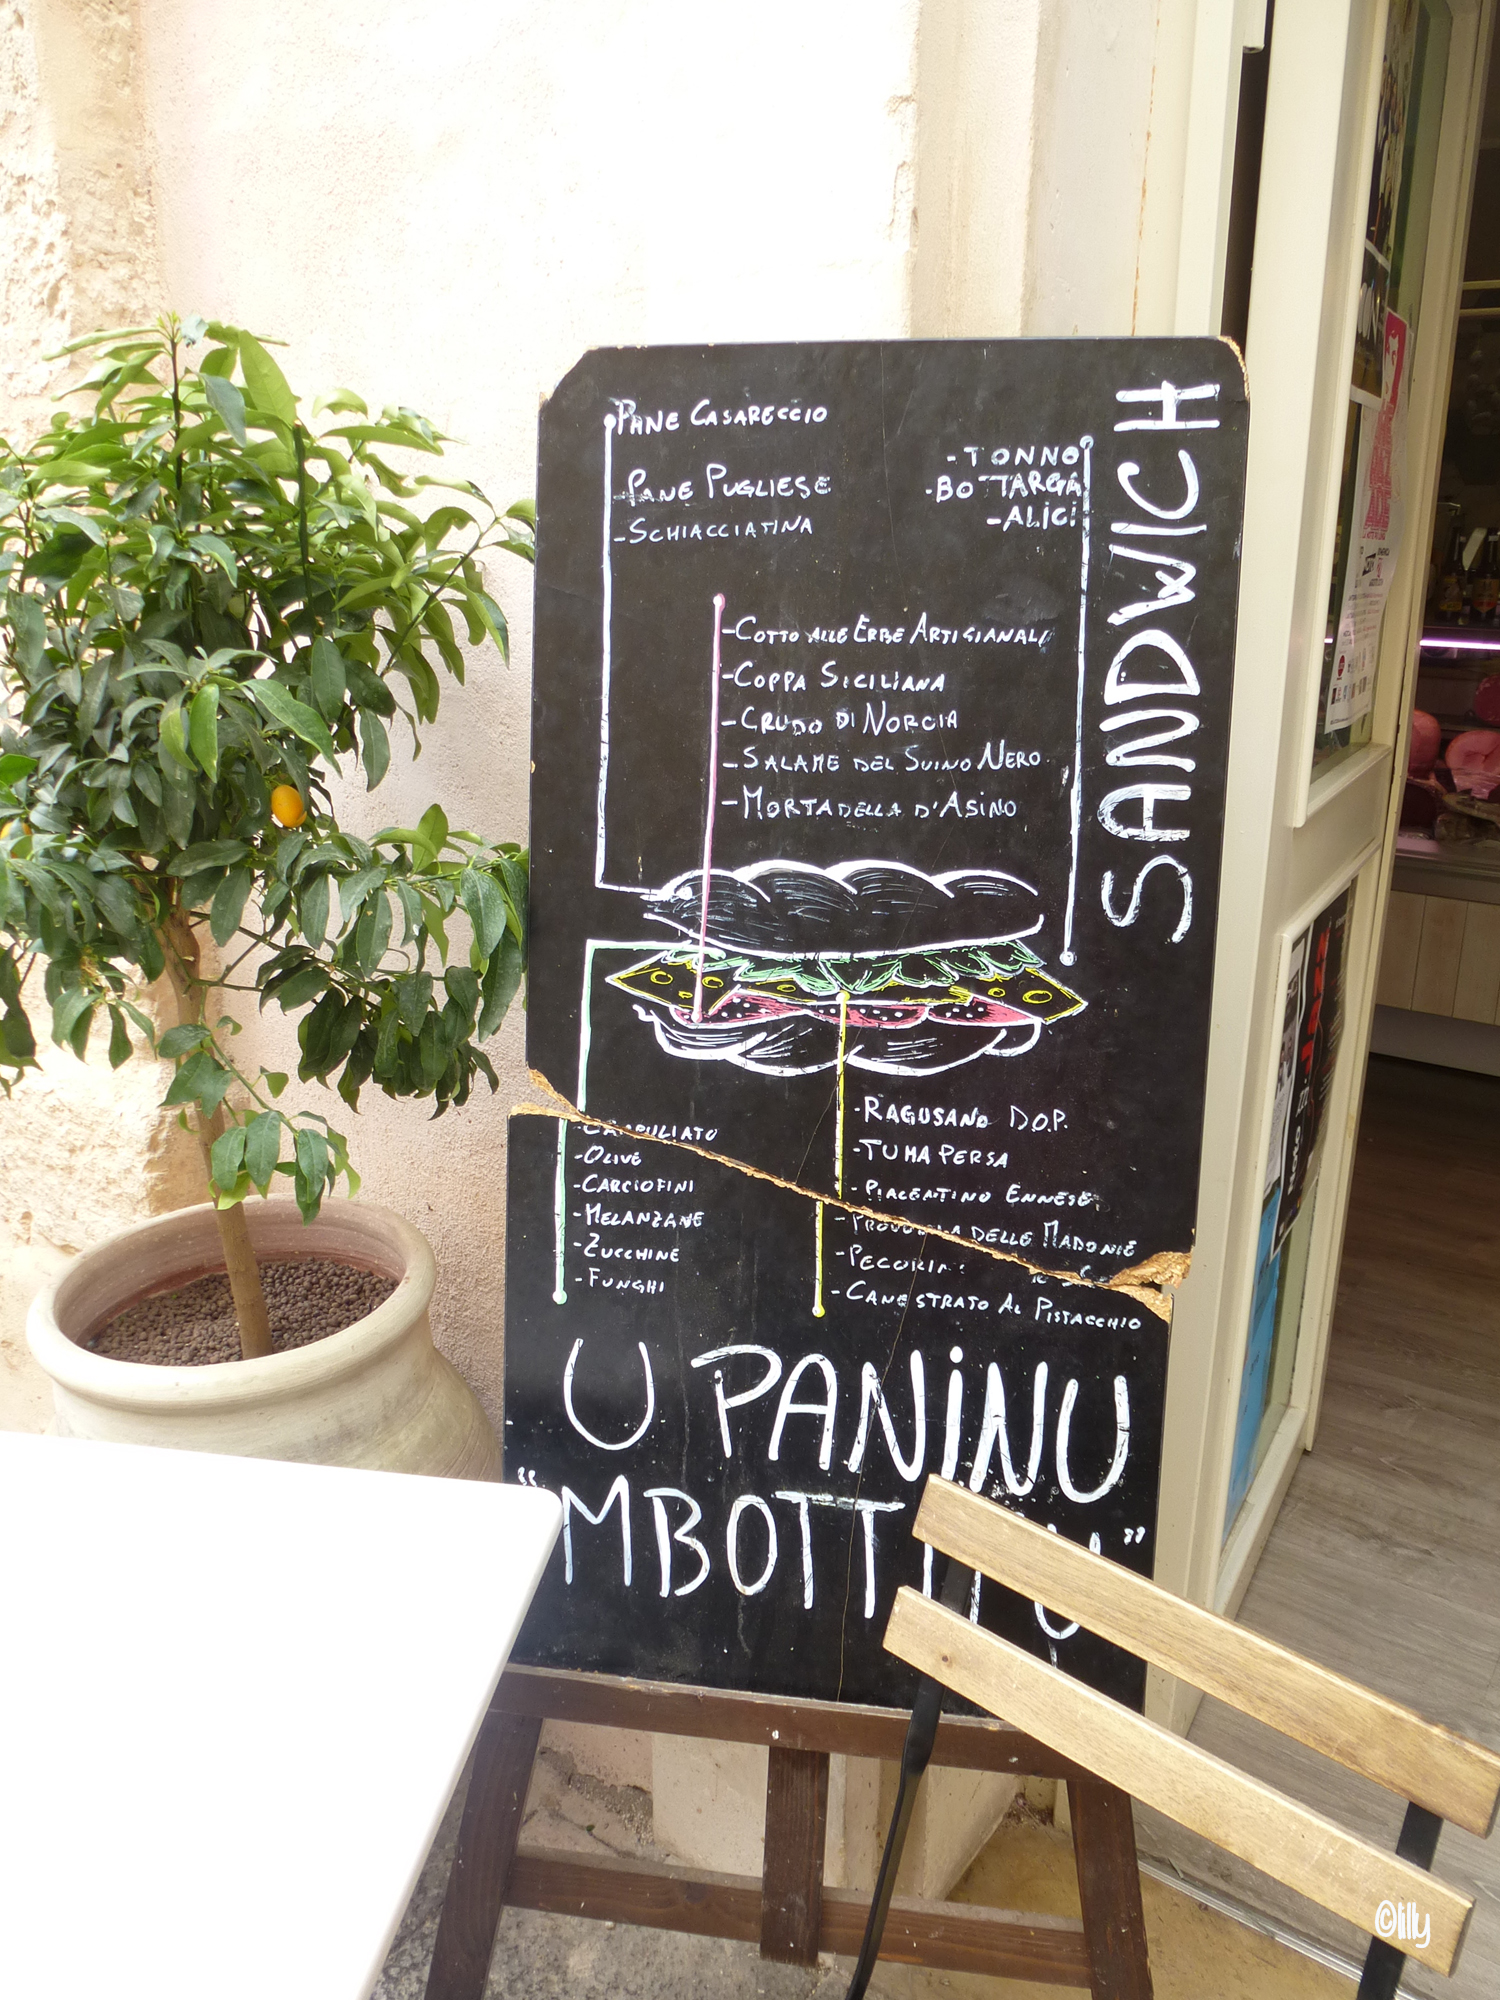 PANE CASARECCIO
-PANE PUGLIESE
-SCHIACCIATINA
-TONNO
-BOTTARGA
-ALICI
SANDWICH
-COTTO ALLE ERBE ARTIGIANALI
-COPPA SICILIANA
-CRUDO DI NORCIA
-SALAME DEL SUINO NERO
-MORTADELLA D'ASINO
-OLIVE
-CARCIOFINI
-MELANZANE
-ZUCCHINE
-FUNGHI
-RAGUSANO D.O.P.
-TUMA PERSA
-PIACENTINO ENNESE
-PROVOLA DELLE MADONIE
-CANESTRATO AL PISTACCHIO
U PANINU
©lilly